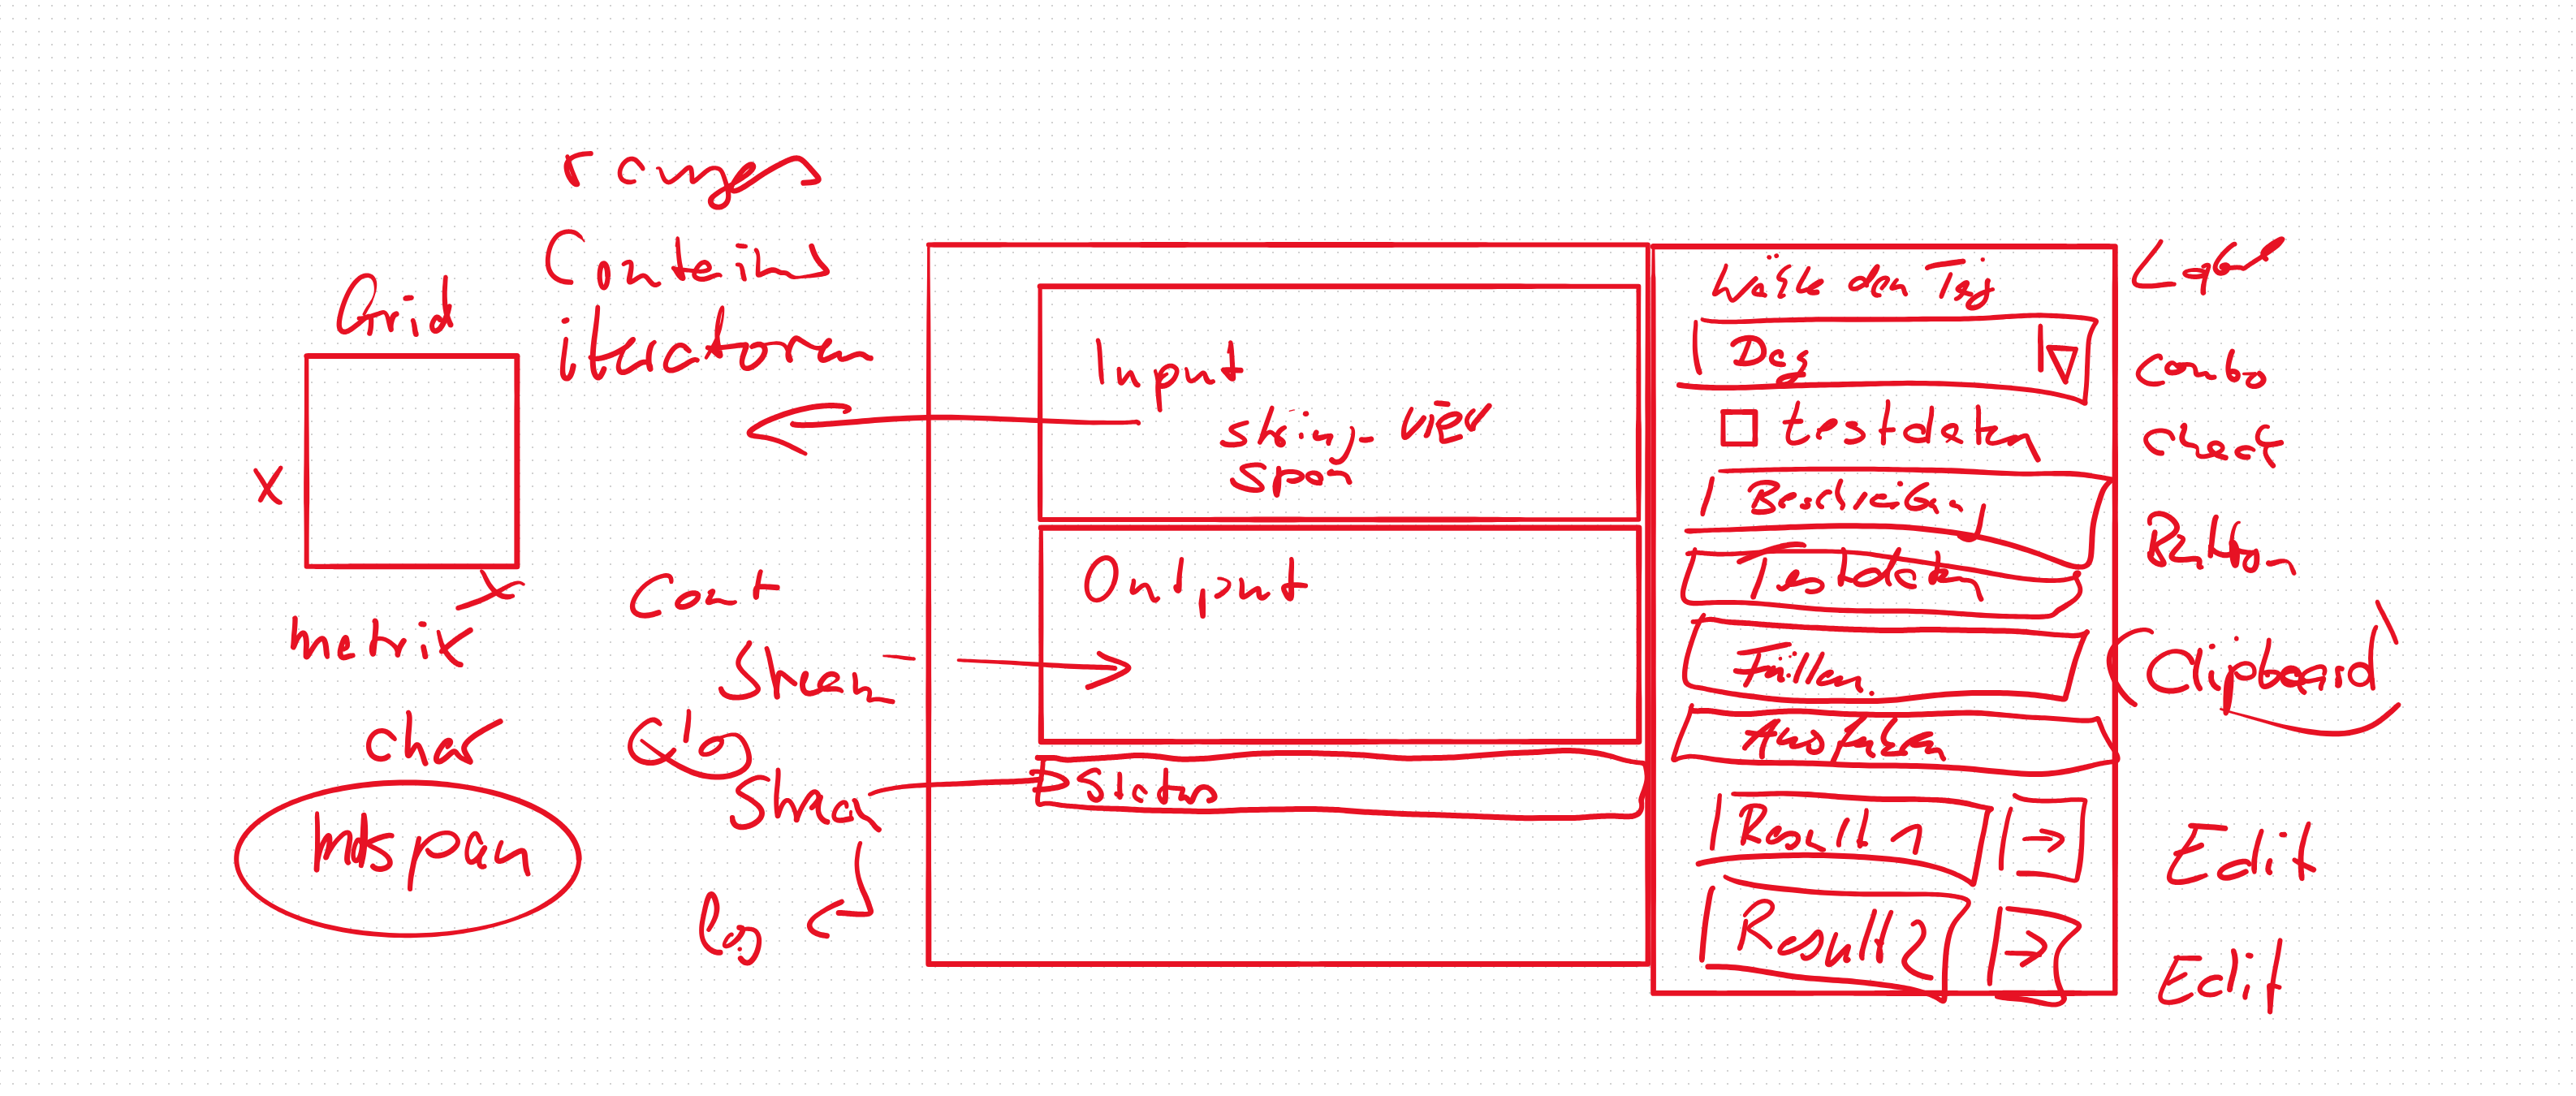 ranges
Container
iteratoren
Grid
x
x
matrix
char
mdspan
Cout
Stream
Clog
Stream
Log
Input
string_view
span
Output
Status
Wähle den Tag
Day
testdaten
Beschreibung
Testdaten
Füllen
Ausführen
Result 1
Result 2
Label
Combo
Check
Button
(Clipboard)
Edit
Edit